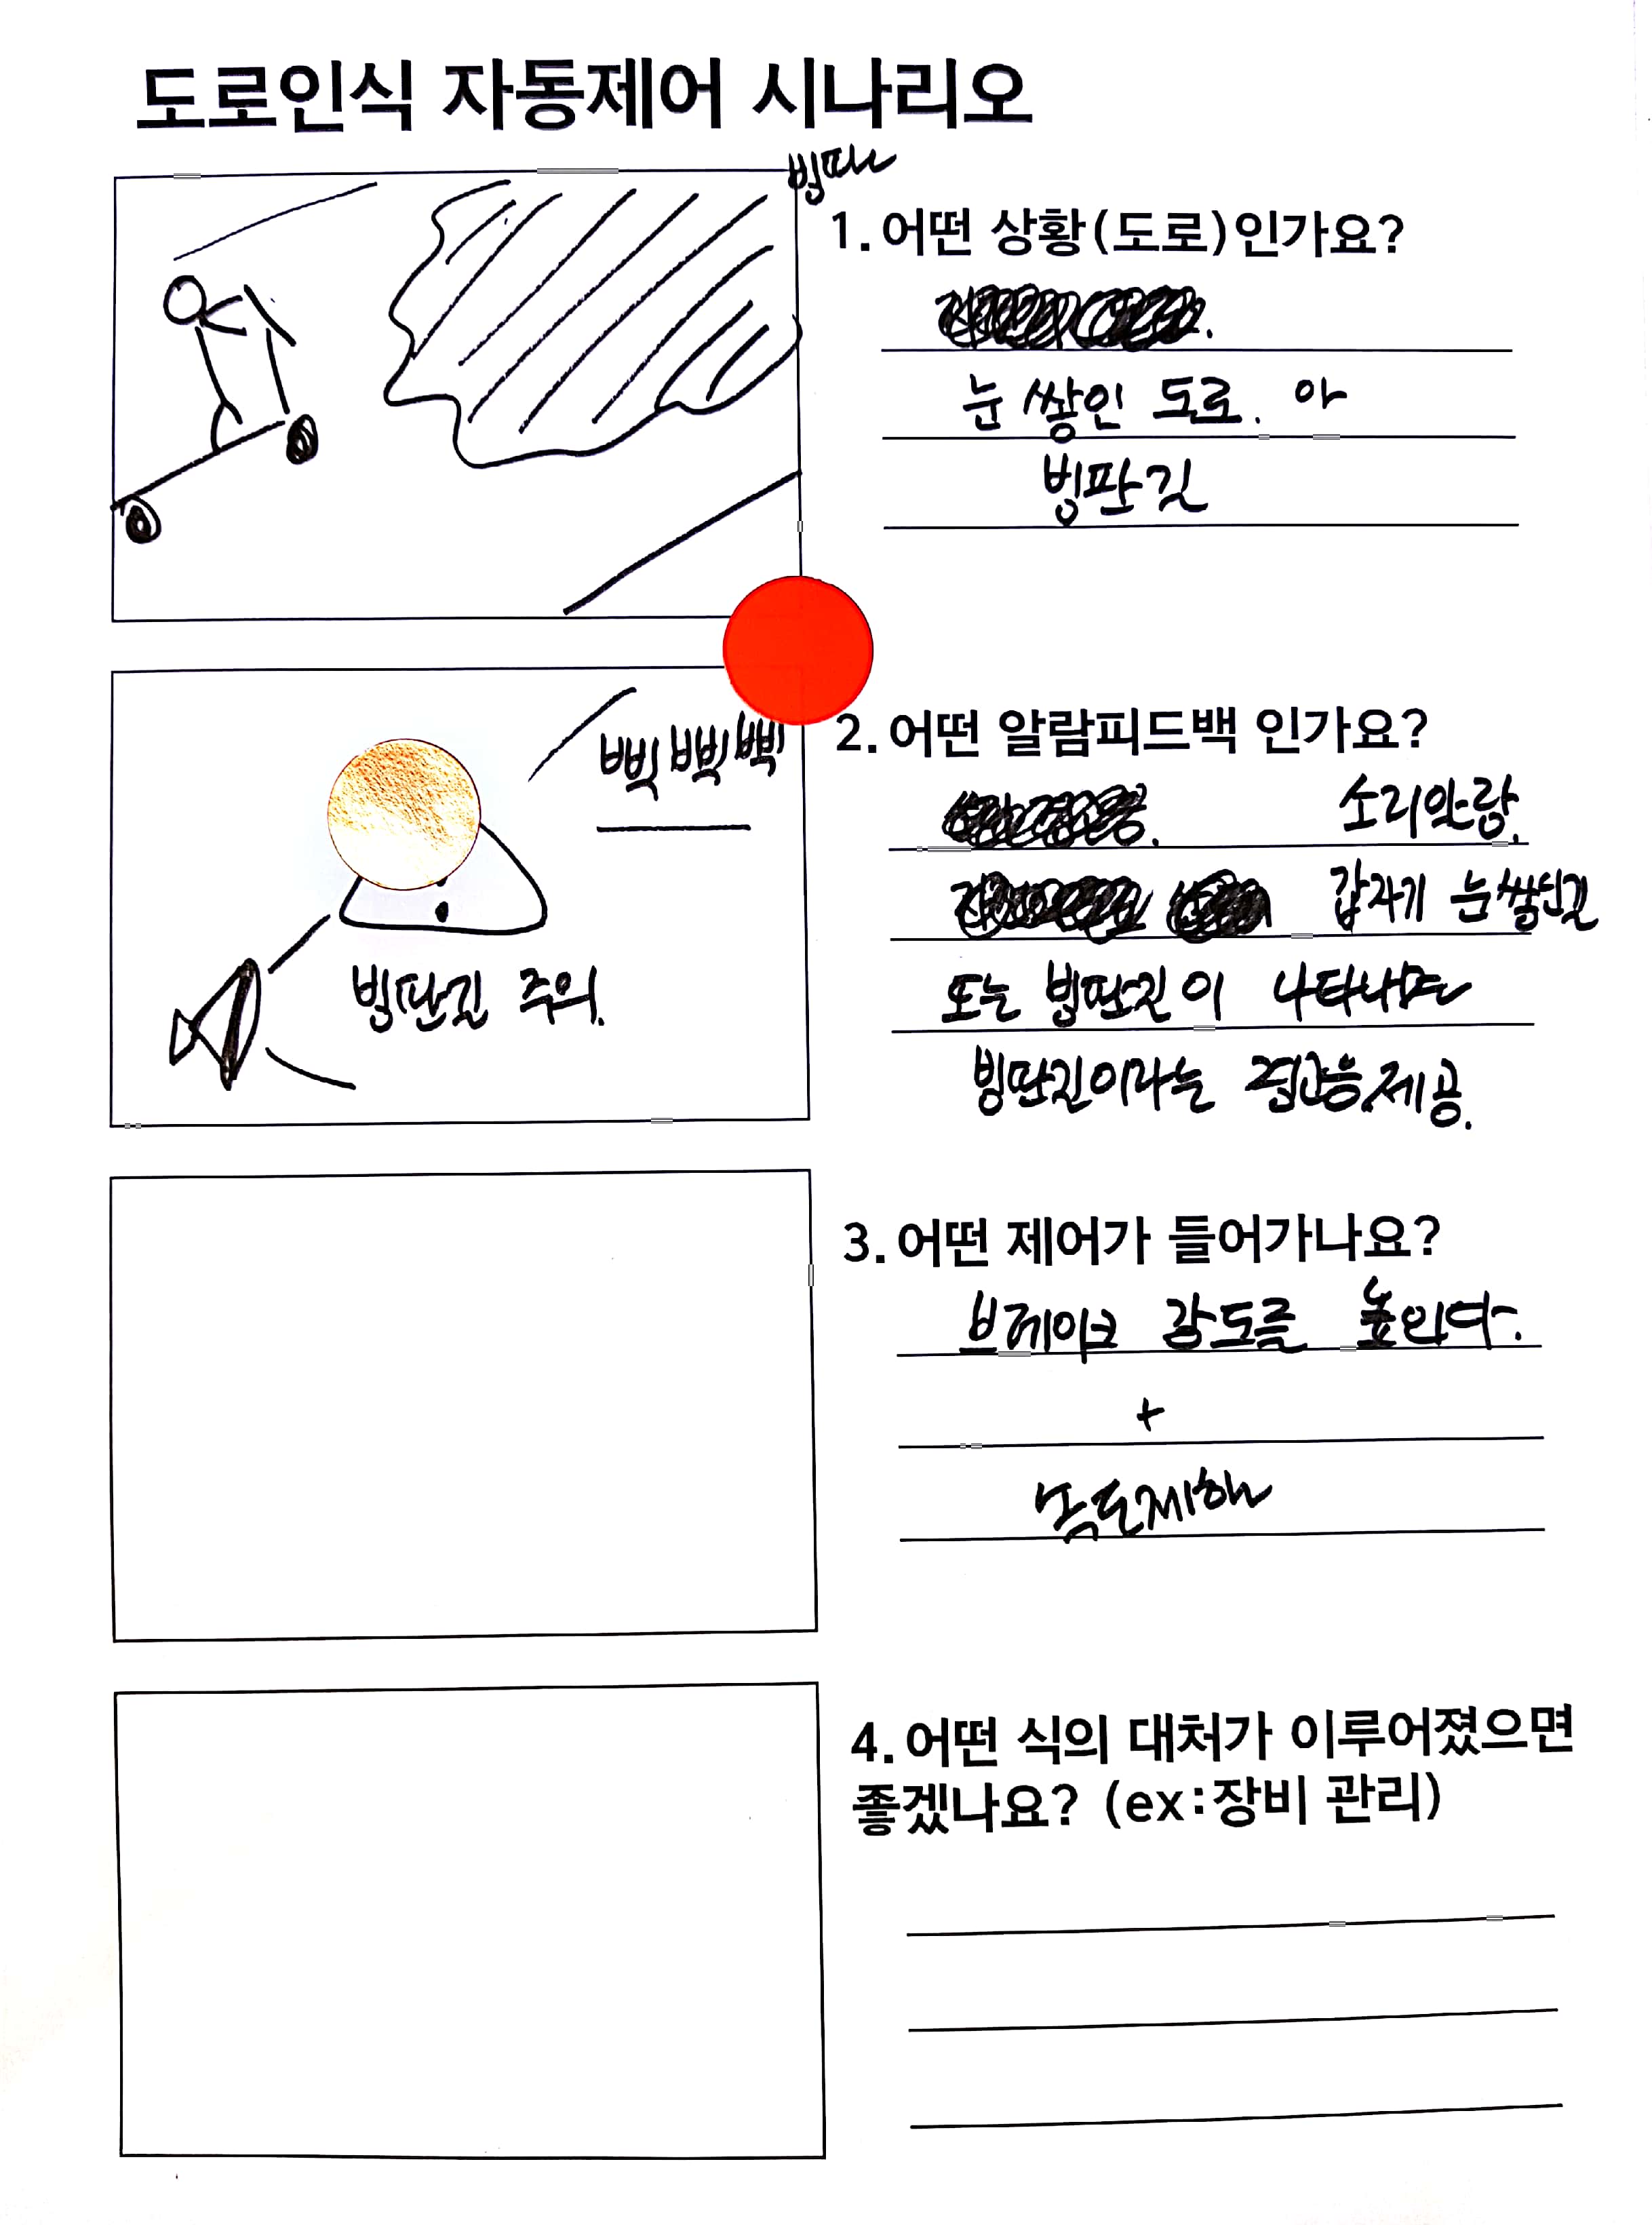 도로인식 자동제어 시나리오
빙판
1. 어떤 상황(도로)인가요?
눈 쌓인 도로. 아
빙판길
삑 삑 삑
2. 어떤 알람피드백 인가요?
소리알람.
갑자기 눈쌓인길
또는 빙판길이 나타나면
빙판길이라는 경고음.제공.
빙판길 주의.
3. 어떤 제어가 들어가나요?
브레이크 강도를 높인다.
+
속도제한
4. 어떤 식의 대처가 이루어졌으면
좋겠나요? (ex:장비 관리)